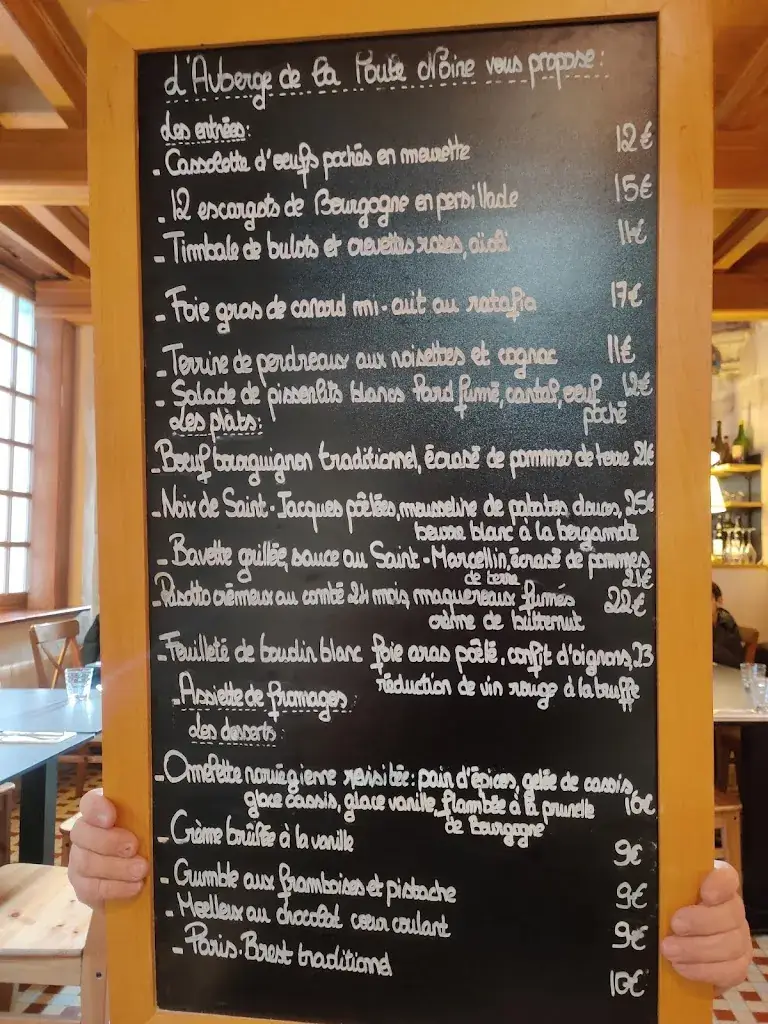 L'Auberge de la Poule Noire vous propose :
Les entrées :
- Cassolette d'oeufs pochés en meurette 12€
- 12 escargots de Bourgogne en persillade 15€
- Timbale de bulots et crevettes roses, aïoli 11€
- Foie gras de canard mi-cuit au ratafia 17€
- Terrine de perdreaux aux noisettes et cognac 11€
- Salade de pissenlits blancs lard fumé, cantal, oeuf 12€
poché
Les plats :
- Boeuf bourguignon traditionnel, écrasé de pommes de terre 21€
- Noix de Saint-Jacques poêlées, mousseline de patates douces, 25€
beurre blanc à la bergamote
- Bavette grillée, sauce au Saint-Marcellin, écrasé de pommes
de terre 21€
- Risotto crémeux au comté 24 mois, maquereaux fumés 22€
crème de butternut
- Feuilleté de boudin blanc foie gras poêlé, confit d'oignons, 23
réduction de vin rouge à la truffe
- Assiette de fromages
Les desserts :
- Omelette norvégienne revisitée : pain d'épices, gelée de cassis,
glace cassis, glace vanille, flambée à la prunelle 10€
de Bourgogne
- Crème brûlée à la vanille 9€
- Crumble aux framboises et pistache 9€
- Moelleux au chocolat coeur coulant 9€
- Paris-Brest traditionnel 10€